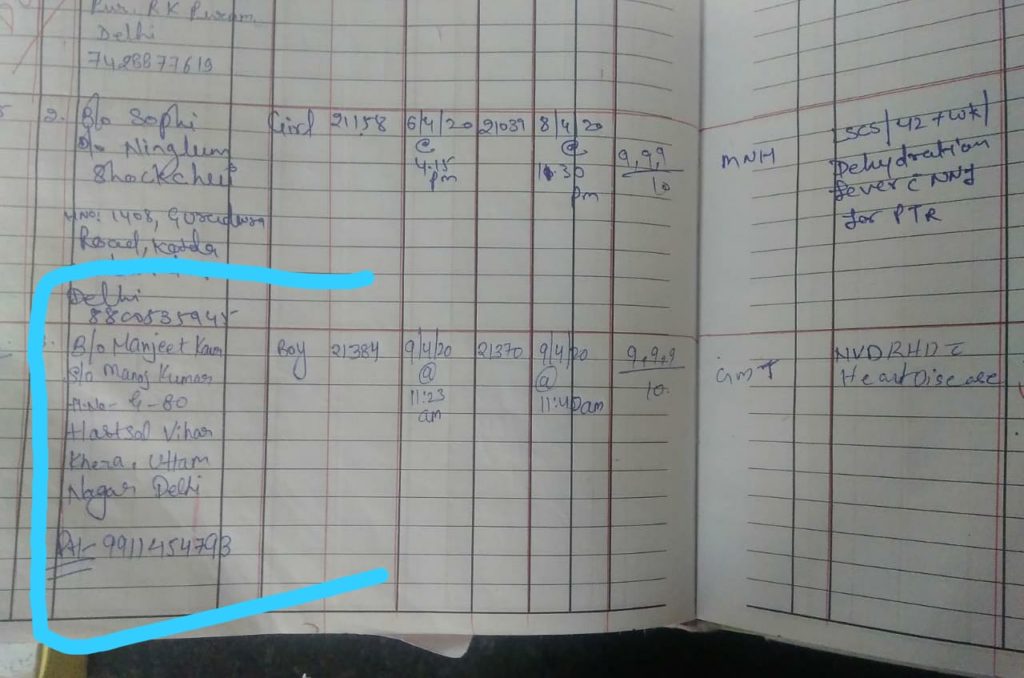 Pur, RK Puram
Delhi
7428877619
2. B/o Sophi Girl 21158 6/4/20 21039 8/4/20
@ @
D/o Ninglum 4.15 9,9,9 MNH SCS/42+wk/
Shockchui pm 11.30 10 Dehydration
pm fever c NNJ
for PTR
H.No: 1408, Gurudwara
Road, Kotla
Delhi
8800535945
B/o Manjeet Kaur Boy 21384 9/4/20 21370 9/4/20 9,9,9 NVD RHD c
S/o Manoj Kumar @ @ 10. Heart Disease
H.No- G-80 11:23 11:40am
Hastsal Vihar am
Khera, Uttam
Nagar Delhi
9911454793